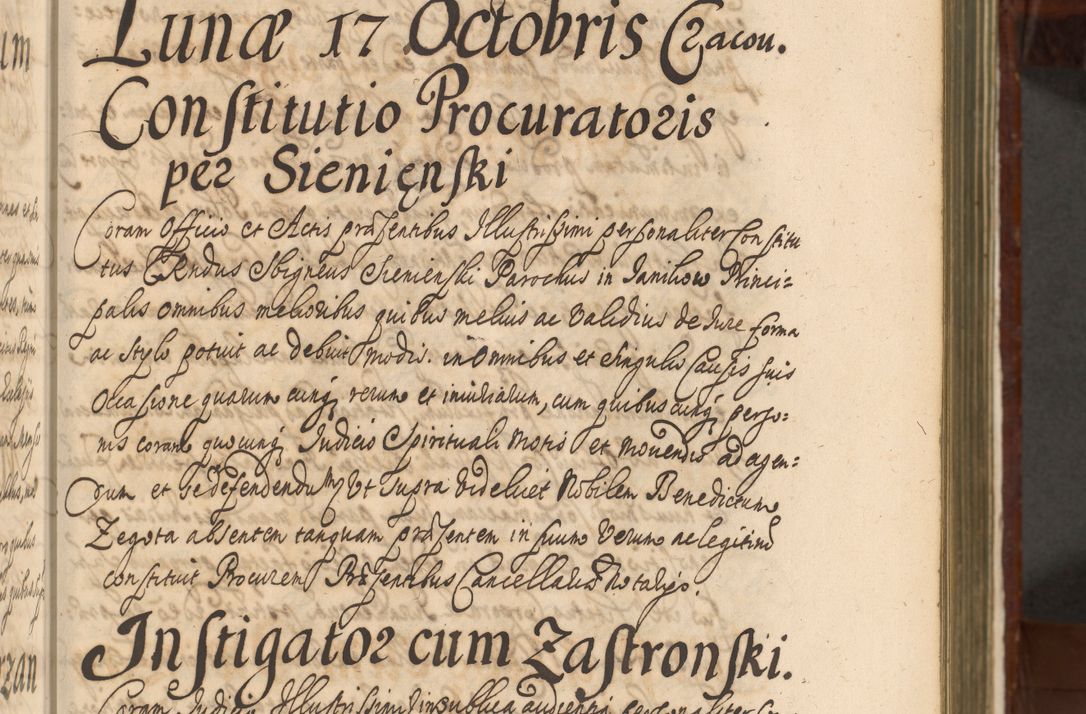 Lunæ 17 Octobris Cracou.
Constitutio Procuratoris
per Sienięnski
Coram Officio et Actis præsentibus Illustrissimi personaliter Constitu
tus Rndus Sbigneus Sienienski Parochus in Janikow Princi-
palis omnibus melioribus quibus melius ac validius de Jure forma
ac stylo potuit ac debuit modis. in omnibus et singulis Causis suis
occasione quarum cunq rerum et iniuriarum, cum quibuscunq perso-
nis coram quocunq Judicio Spirituali motis et mouendis ad agen-
dum et se defendendum vt supra videlicet Nobilem Benedictum
Zegota absentem tanquam præsentem in suum verum ac legitimū
constituit Procurem Præsentibus Cancellariæ Notarijs.
Instigator cum Zastronski.
Coram Judicio Illustrissimi in publica audientia personaliter